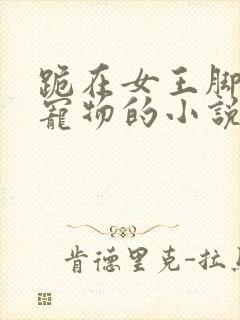 跪在女王脚
寵物的小説
肯德里克-拉